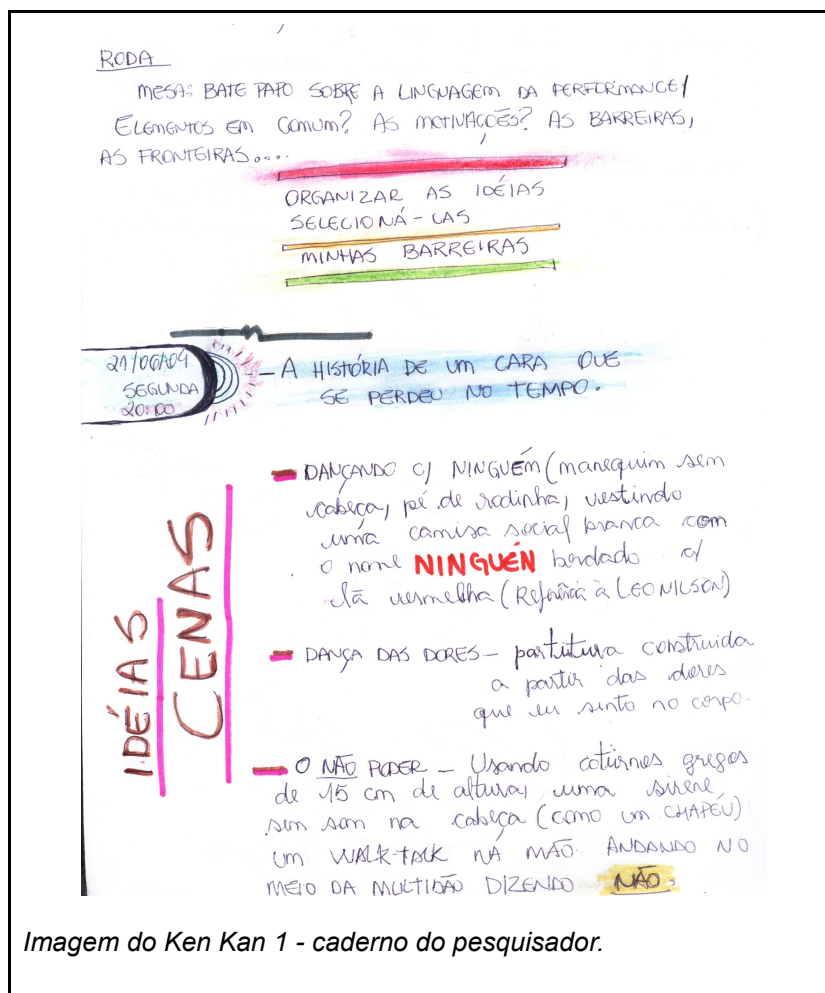 RODA
MESA: BATE PAPO SOBRE A LINGUAGEM DA PERFORMANCE/
ELEMENTOS EM COMUM? AS MOTIVAÇÕES? AS BARREIRAS,
AS FRONTEIRAS....
ORGANIZAR AS IDÉIAS
SELECIONÁ-LAS
MINHAS BARREIRAS
21/06/04
SEGUNDA
20:00
— A HISTÓRIA DE UM CARA QUE
SE PERDEU NO TEMPO.
IDÉIAS
CENAS
- DANÇANDO C/ NINGUÉM (manequim sem
cabeça, pé de rodinha, vestindo
uma camisa social branca com
o nome NINGUÉN bordado c/
lã vermelha (Referência à LEONILSON)
- DANÇA DAS DORES - partitura construida
a partir das dores
que eu sinto no corpo.
- O NÃO PODER - Usando coturnos gregos
de 15 cm de altura, uma sirene
sem som na cabeça (como um CHAPÉU)
UM WALK-TALK NA MÃO. ANDANDO NO
MEIO DA MULTIDÃO DIZENDO NÃO.
Imagem do Ken Kan 1 - caderno do pesquisador.